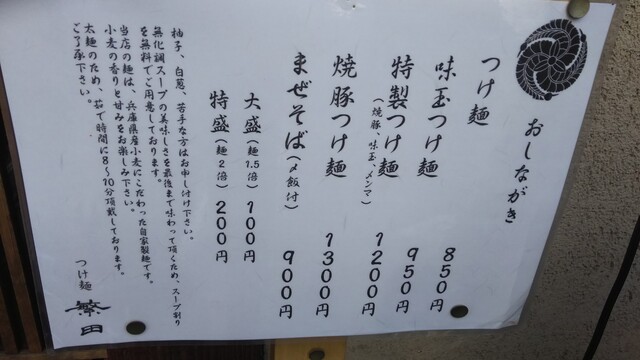 おしながき
つけ麺 850円
味玉つけ麺 950円
特製つけ麺 1200円
(焼豚、味玉、メンマ)
焼豚つけ麺 1300円
まぜそば(〆飯付) 900円
大盛(麺1.5倍) 100円
特盛(麺2倍) 200円
柚子、白葱、苦手な方はお申し付け下さい。
無化調スープの美味しさを最後まで味わって頂くため、スープ割り
を無料でご用意しております。
当店の麺は、兵庫県産小麦にこだわった自家製麺です。
小麦の香りと甘みをお楽しみ下さい。
太麺のため、茹で時間に8〜10分頂戴しております。
ご了承下さい。
つけ麺 繁田